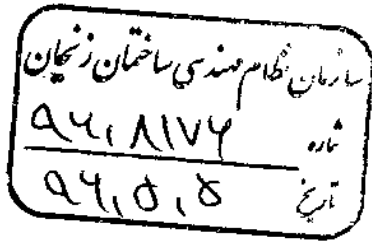 سازمان نظام مهندسی ساختمان زنجان
شماره ۹۶،۸۱۷۶
تاریخ ۹۶،۵،۵